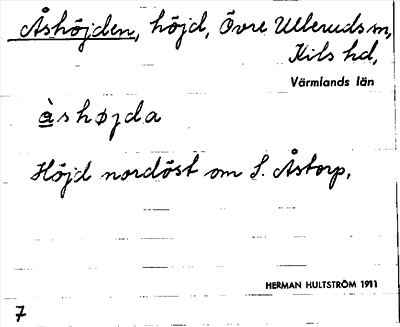 Åshöjden, höjd, Övre Ulleruds sn,
Kils hd,
Värmlands län
àshøjda
Höjd nordöst om S. Åstorp.
HERMAN HULTSTRÖM 1911
7